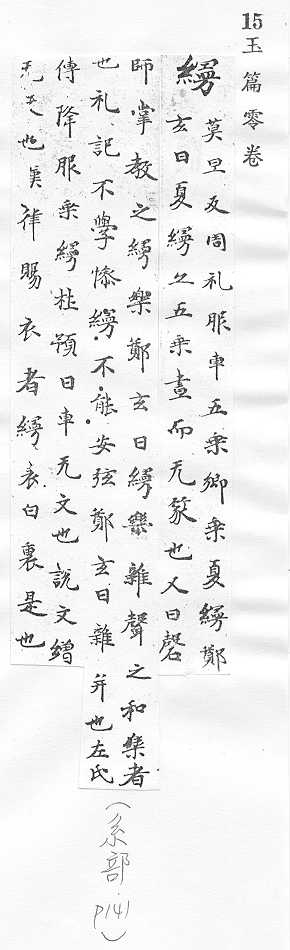 15 玉篇零卷
縵
莫旦反周礼服車五乗卿乗夏縵鄭
玄曰夏縵亦五乗畫而无篆也又曰磬
師掌教之縵樂鄭玄曰縵樂雜聲之和樂者
也礼記不學慘縵不能安弦鄭玄曰雜弄也左氏
傳降服乗縵杜預曰車无文也說文繒
无文也漢律賜衣者縵表白裏是也
(糸部 P141)